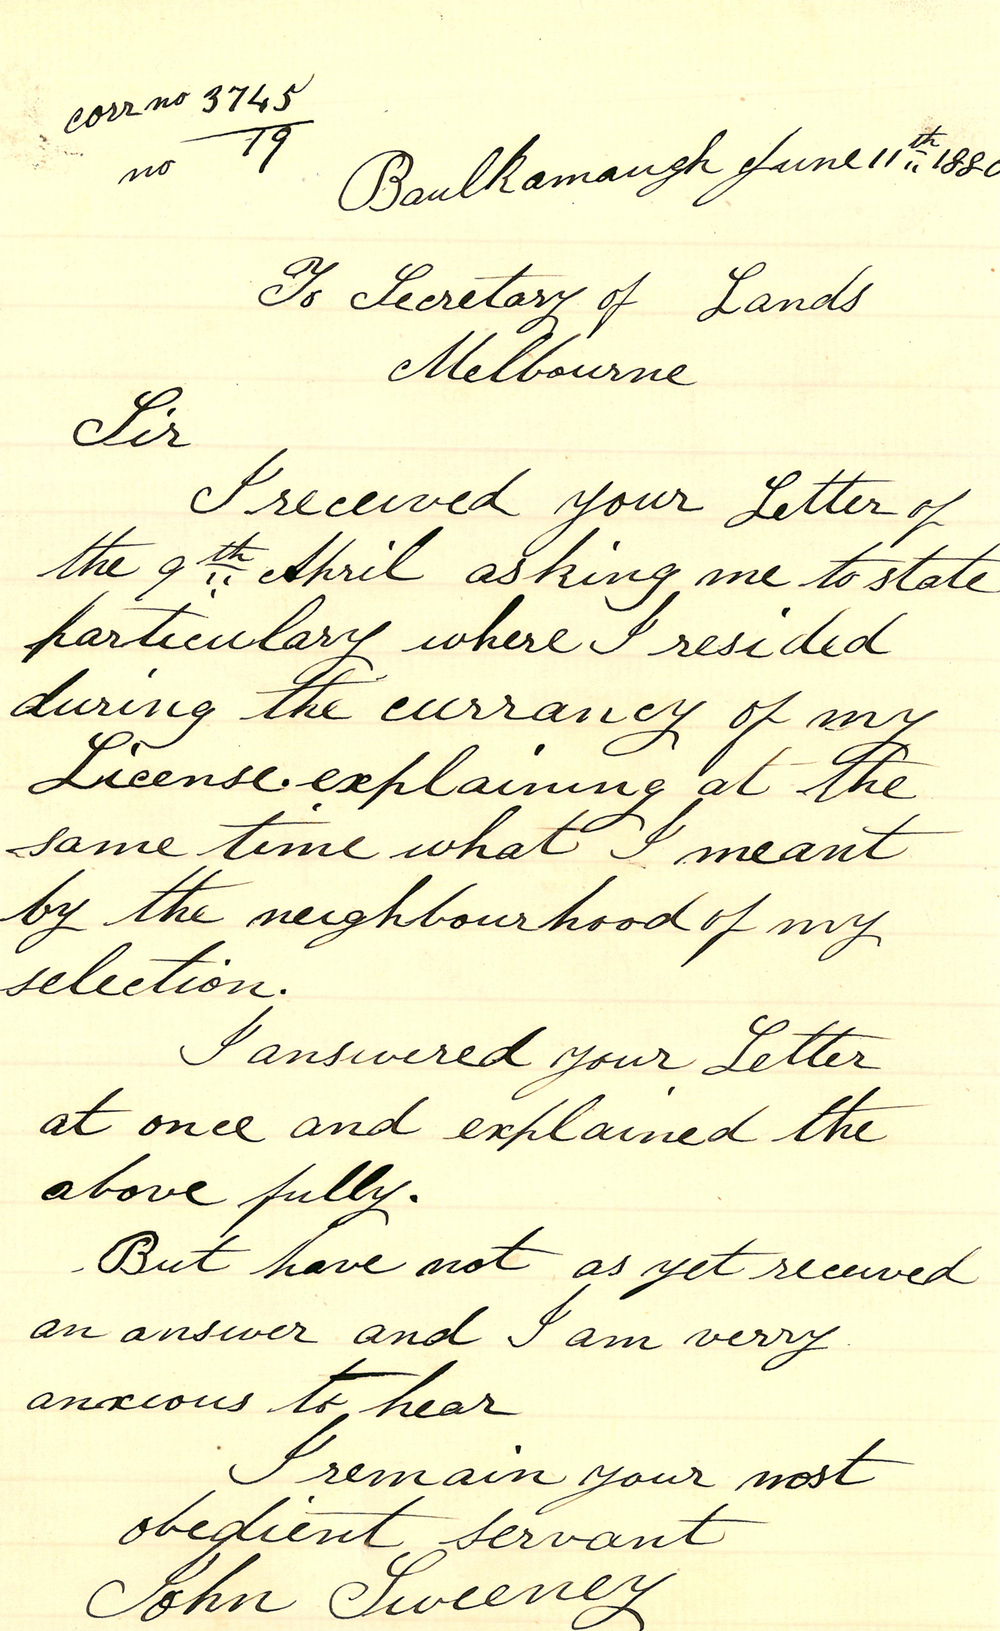 corr no 3745
no 19
Baulkamaugh June 11th 1880
To Secretary of Lands
Melbourne
Sir
I received your Letter of
the 9th April asking me to state
particulary where I resided
during the currancy of my
License. explaining at the
same time what I meant
by the neighbourhood of my
selection.
I answered your Letter
at once and explained the
above fully.
But have not as yet received
an answer and I am verry
anxious to hear
I remain your most
obedient servant
John Sweeney